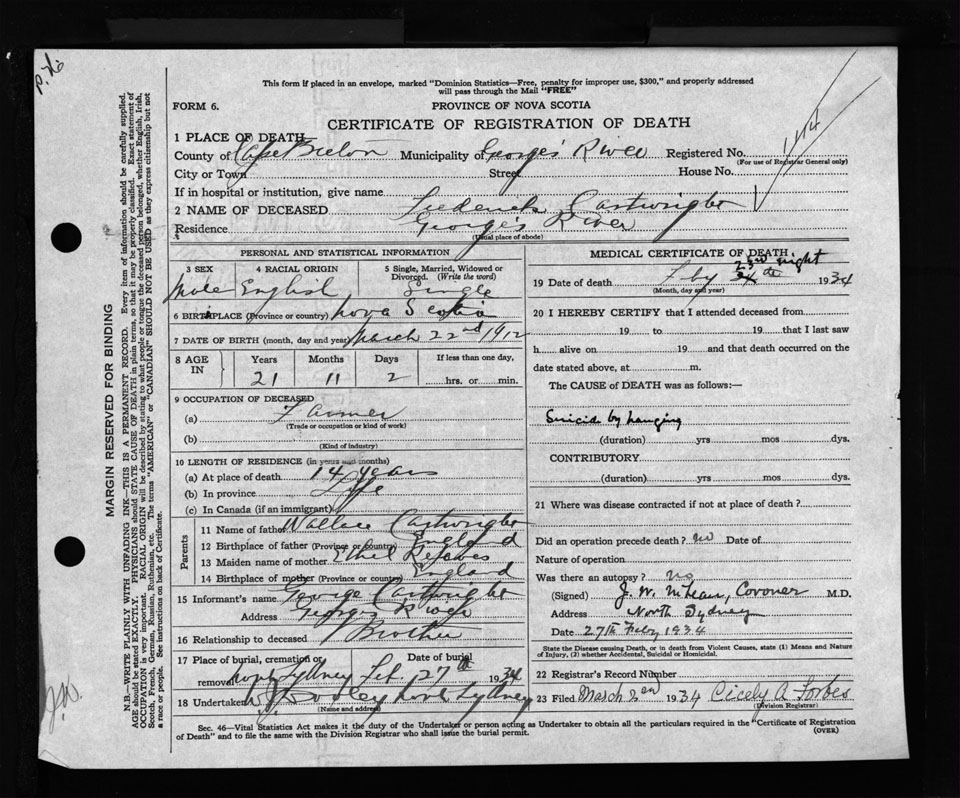 This form if placed in an envelope, marked "Dominion Statistics—Free, penalty for improper use, $300," and properly addressed
will pass through the Mail "FREE"
FORM 6.
PROVINCE OF NOVA SCOTIA
CERTIFICATE OF REGISTRATION OF DEATH
1 PLACE OF DEATH
County of Cape Breton Municipality Georges River Registered No.
(For use of Registrar General only)
City or Town Street House No.
If in hospital or institution, give name
2 NAME OF DECEASED Frederick Cartwright
Residence George's River
(Usual place of abode)
PERSONAL AND STATISTICAL INFORMATION
3 SEX 4 RACIAL ORIGIN 5 Single, Married, Widowed or
Divorced. (Write the word)
Male English Single
6 BIRTHPLACE (Province or country) Nova Scotia
7 DATE OF BIRTH (month, day and year) March 22nd 1912
8 AGE IN Years Months Days If less than one day,
21 11 2 hrs. or min.
9 OCCUPATION OF DECEASED
(a) Farmer
(Trade or occupation or kind of work)
(b)
(Kind of industry)
10 LENGTH OF RESIDENCE (in years and months)
(a) At place of death 14 years
(b) In province Life
(c) In Canada (if an immigrant)
Parents
11 Name of father Wallace Cartwright
12 Birthplace of father (Province or country) England
13 Maiden name of mother Ethel
14 Birthplace of mother (Province or country) England
15 Informant's name George Cartwright
Address Georges River
16 Relationship to deceased Brother
17 Place of burial, cremation or removal Date of burial
North Sydney Feb 27th 1934
18 Undertaker North Sydney
(Name and address)
MEDICAL CERTIFICATE OF DEATH
23rd night
19 Date of death Feby 24th 1934
(Month, day and year)
20 I HEREBY CERTIFY that I attended deceased from
19 to 19 that I last saw
h alive on 19 and that death occurred on the
date stated above, at m.
The CAUSE of DEATH was as follows:—
Suicide by hanging
(duration) yrs mos dys.
CONTRIBUTORY
(duration) yrs mos dys.
21 Where was disease contracted if not at place of death?
Did an operation precede death? no Date of
Nature of operation
Was there an autopsy? No
(Signed) J. W. McLean, Coroner M.D.
Address North Sydney
Date 27th Feby 1934
State the Disease causing Death, or in death from Violent Causes, state (1) Means and Nature
of Injury, (2) whether Accidental, Suicidal or Homicidal.
22 Registrar's Record Number
23 Filed March 2nd 1934 Cicely A. Forbes
(Division Registrar)
Sec. 46—Vital Statistics Act makes it the duty of the Undertaker or person acting as Undertaker to obtain all the particulars required in the "Certificate of Registration
of Death" and to file the same with the Division Registrar who shall issue the burial permit.
(OVER)
MARGIN RESERVED FOR BINDING
N.B.—WRITE PLAINLY WITH UNFADING INK—THIS IS A PERMANENT RECORD. Every item of information should be carefully supplied.
AGE should be stated EXACTLY. PHYSICIANS should STATE CAUSE OF DEATH in plain terms, so that it may be properly classified. Exact statement of
OCCUPATION is very important. RACIAL ORIGIN will be described by stating to what people or tongue the deceased person belonged, whether English, Irish,
Scotch, French, German, Russian, Ruthenian, etc. The terms "AMERICAN" or "CANADIAN" SHOULD NOT BE USED as they express citizenship but not
a race or people. See instructions on back of Certificate.